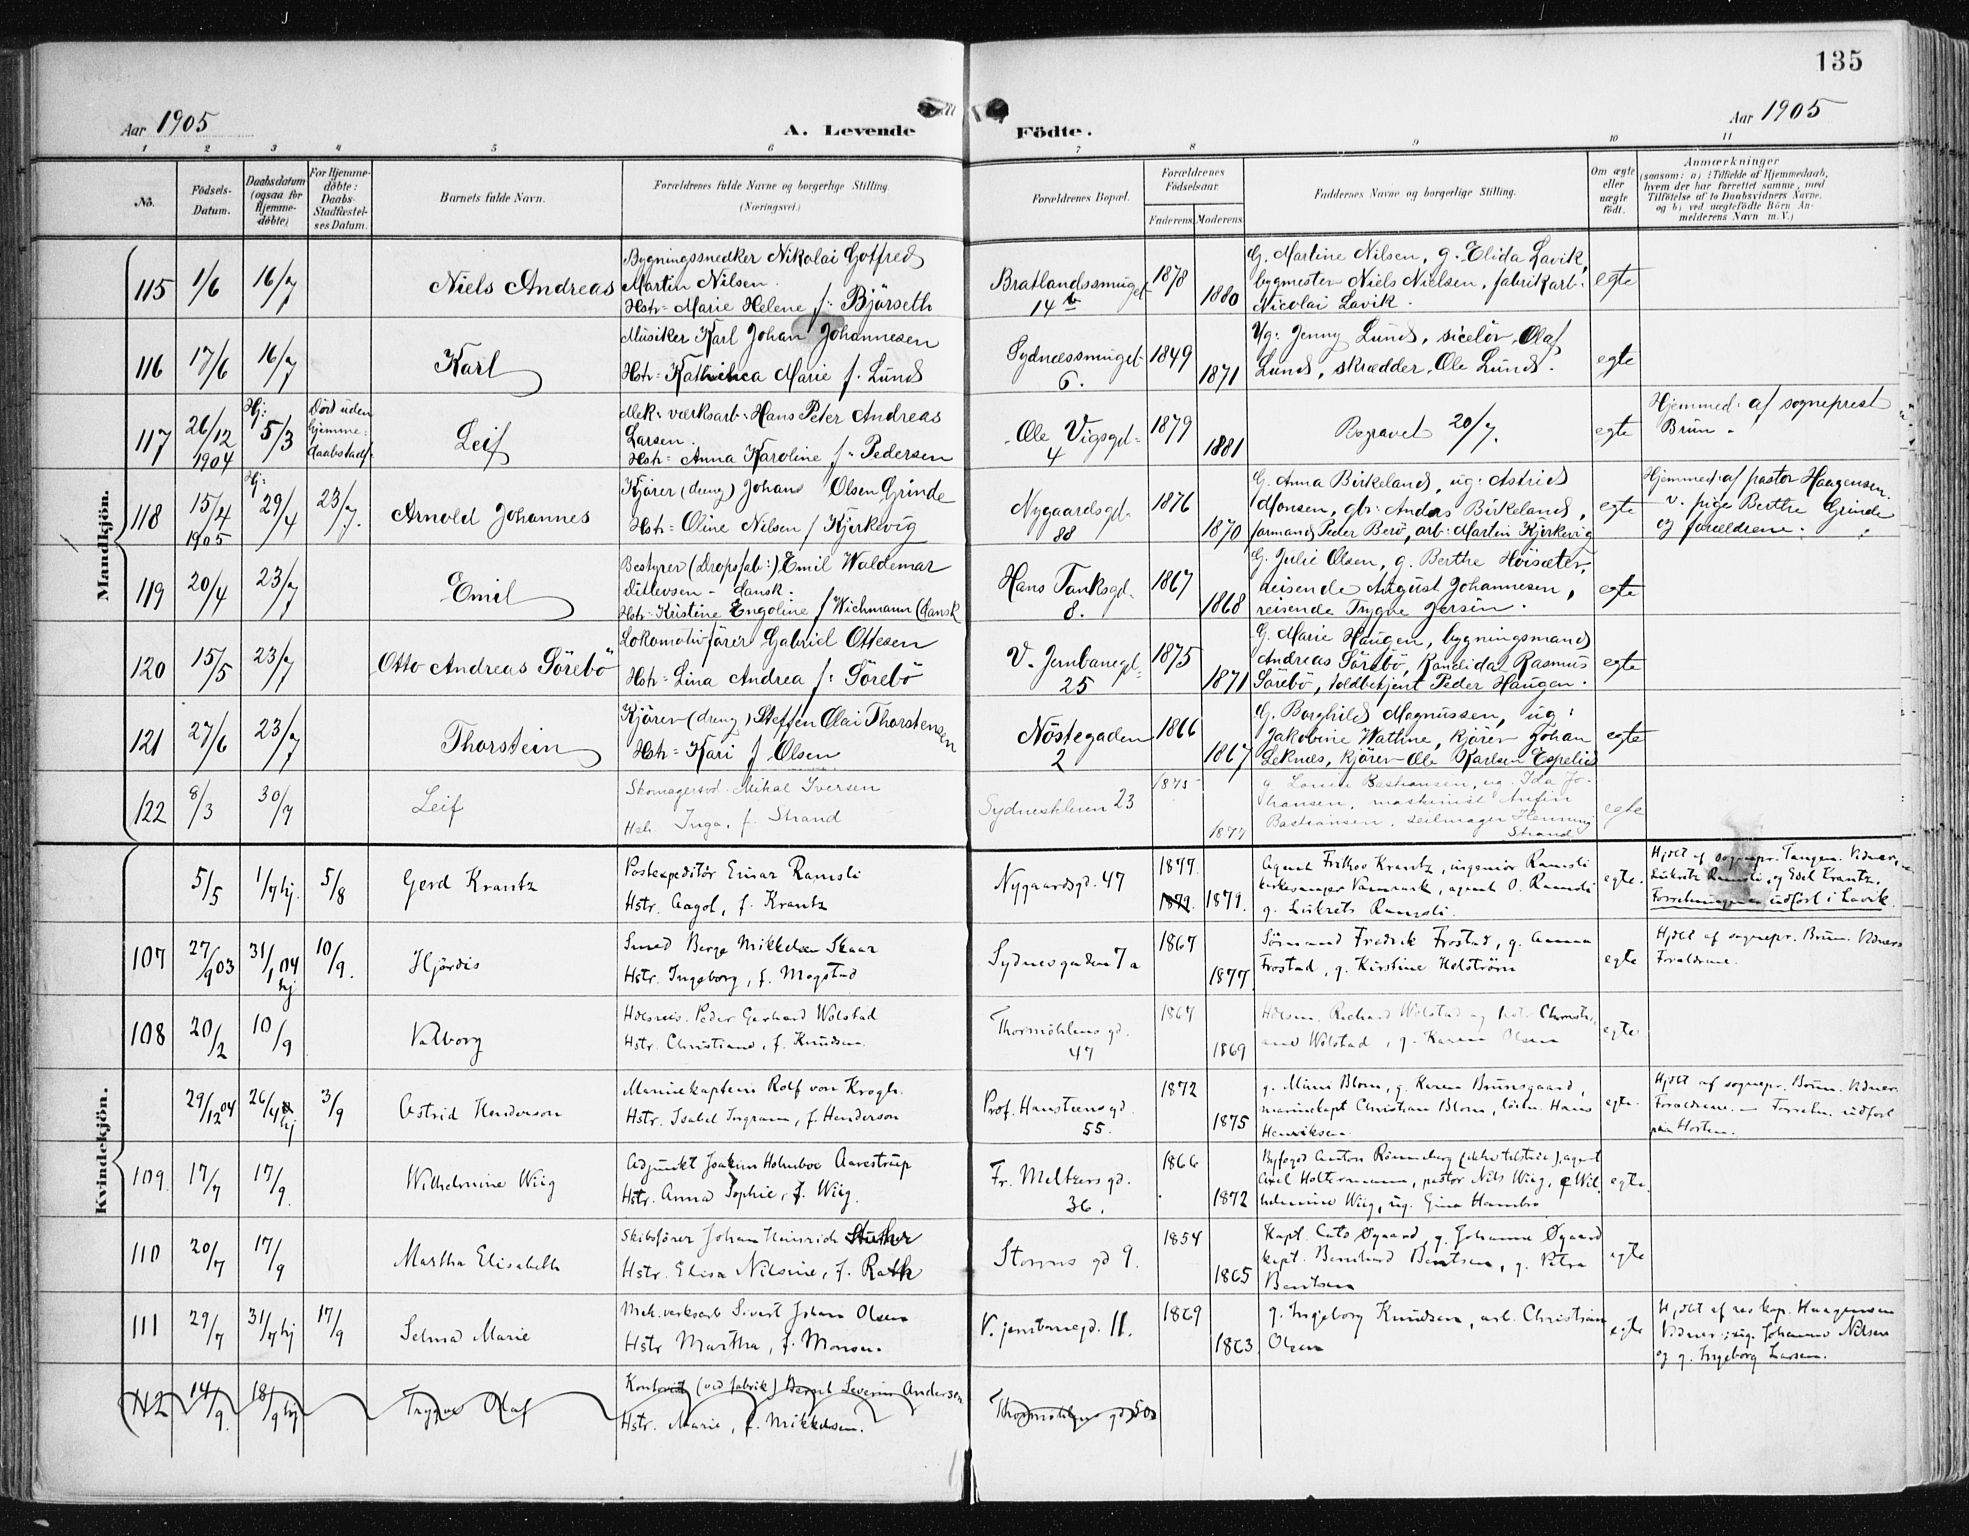 135
Aar 1905
A. Levende
Födte.
Aar 1905
1 2 3 4 5 6 7 8 9 10 11
No.
Födsels-
Datum.
Daabsdatum
(ogsaa for
Hjemme-
döbte)
For Hjemme-
döbte:
Daabs-
Stadfæstel-
ses Datum.
Barnets fulde Navn.
Forældrenes fulde Navne og borgerlige Stilling.
(Næringsvei.)
Forældrenes Bopæl.
Forældrenes
Födselsaar.
Faderens. Moderens.
Faddernes Navne og borgerlige Stilling.
Om ægte
eller
uægte
födt.
Anmærkninger
(saasom: a) i Tilfælde af Hjemmedaab,
hvem der har forrettet samme, med
Tilföielse af to Daabsvidners Navne,
og b) ved uægtefödte Börn An-
melderens Navn m. V.)
Mandkjön.
115 1/6 16/7 Niels Andreas
Bygningssnedker Nikolai Gotfred
Martin Nilsen.
Hstr: Marie Helene f: Björseth
Bratlandssmuget
14b
1878 1880
G. Martine Nilsen, g. Elida Lavik,
bygmester Niels Nielsen, fabrikarb:
Nicolai Lavik.
egte
116 17/6 16/7 Karl
Musiker Karl Johan Johannesen
Hstr: Kathinca Marie f. Lund
Sydnæssmuget
6.
1849 1871
Ug: Jenny Lund, Olaf
Lund, skrædder Ole Lund.
egte
117 26/12 1904 Hj: 5/3
Död uden
hjemme-
daabstadf:
Leif
Mek: værksarb: Hans Peter Andreas
Larsen.
Hstr: Anna Karoline f. Pedersen
Ole Vigsgd:
4
1879 1881
Begravet 20/7.
egte
Hjemmed: af sogneprest
Brun.
118 15/4 1905 Hj: 29/4 23/7. Arnold Johannes
Kjörer (dreng) Johan Olsen Grinde
Hstr: Oline Nilsen f Kjerkevig
Nygaardsgd.
88
1876 1870
G. Anna Birkeland, ug: Astrid
Monsen, gbr: Anders Birkeland,
formand Peder Berö, arb: Martin Kjerkevig
egte
Hjemmed: af pastor Haagensen.
v. pige Berthe Grinde
og forældrene.
119 20/4 23/7 Emil
Bestyrer (Dropsfab:) Emil Waldemar
Ditlevsen - dansk.
Hstr: Kristine Engoline f Wichmann (dansk
Hans Tanksgd.
8.
1867 1868
G. Julie Olsen, g. Berthe Höisæter,
reisende August Johannesen,
reisende Trygve Jersin.
egte
120 15/5 23/7 Otto Andreas Sörebö
Lokomotivförer Gabriel Ottesen
Hstr: Lina Andrea f: Sörebö
V. Jernbanegd:
25
1875 1871
G. Marie Haugen, bygningsmand
Andreas Sörebö, Kandidat Rasmus
Sörebö, toldbetjent Peder Haugen.
egte
121 27/6 23/7 Thorstein
Kjörer (dreng) Steffen Olai Thorstensen
Hstr: Kari f Olsen
Nöstegaden
2
1866 1867
G. Borghild Magnussen, ug:
Jakobine Wathne, kjörer Johan
Leknes, kjörer Ole Karlsen Espelid
egte
122 8/3 30/7 Leif
Skomagersvd. Mikal Iversen
Hstr. Inga, f. Strand
Sydneskleven 23
1875 1877
g. Lovise Bastiansen, ug. Ida Jo-
hansen, maskinist Anfin
Bastiansen, seilmager Henning
Strand
egte
Kvindekjön.
5/5 1/7 hj. 5/8 Gerd Krantz
Postexpeditör Einar Ramsli
Hstr. Aagot, f. Krantz
Nygaardsgd. 47
1877 1879. 1879.
Agent Frithov Krantz, ingeniör Ramsli
kirkesanger, agent O. Ramsli
g. Ramsli.
egte.
Hjdbt af sognepr. Tangen. Vidner
Ramsli, og Edel Krantz.
Forretningen udfört i Lavik.
107 27/9 03 31/1 04 hj 10/9. Hjördis
Smed Berge Mikkelsen Skaar
Hstr. Ingeborg, f. Mogstad
Sydnesgaden 7a
1867 1877
Sömand Fredrik Frostad, g. Anna
Frostad, g. Kirstine Holström
egte
Hjdbt af sognepr. Brun. Vidner
Forældrene.
108 20/2 10/9 Valborg
Peder Gerhard Wolstad
Hstr. Christiane, f. Knudsen.
Thormöhlens gd.
47
1867 1869
Richard Wolstad og hstr
Wolstad, g. Karen Olsen
egte
29/12 04 26/4 hj 3/9 Astrid Henderson
Marinekaptein Rolf von Krogh.
Hstr. Isabel Ingram, f. Henderson
Prof. Hansteensgd.
55.
1872 1875
g. Mimi Blom, g. Karen Brunsgaard,
marinekapt Christian Blom, Hans
Henriksen.
egte.
Hjdbt af sognepr. Brun. Vidner
Forældrene. — Forretn. udfört
paa Horten.
109. 17/7 17/9. Wilhelmine Wiig
Adjunkt Joakim Holmboe Aarestrup
Hstr. Anna Sophie, f. Wiig.
Fr. Meltzers gd.
36.
1866 1872
Byfogd Anton Rönneberg, agent
Axel Holtermann, pastor Nils Wiig, g Wil-
helmine Wiig, ug. Gina Hambro
egte.
110 20/7 17/9 Martha Elisabeth
Skibsförer Johan Heinrich
Hstr. Elisa Nilsine, f. Rath
Storms gd 9.
1854 1865
Kapt. Cato Øgaard, g. Johanne Øgaard
kapt. Bernhard Bentsen, g. Petra
Bentsen
egte
111 29/7 31/7 hj 17/9 Selma Marie
Mek.verksarb Sivert Johan Olsen
Hstr Martha, f. Monsen.
V. jernbanegd. 11.
1869 1863.
g. Ingeborg Knudsen, arb. Christian
Olsen
egte
Hjdbt af res kap. Haagensen
Vidner: ug. Johanne Nilsen
og g. Ingeborg Larsen.
112 14/9. 18/9 hj Trygve Olaf
Kontorist (ved fabrik) Bernt Severin Andersen
Hstr. Marie, f. Mikkelsen.
Thormöhlens gd 50a